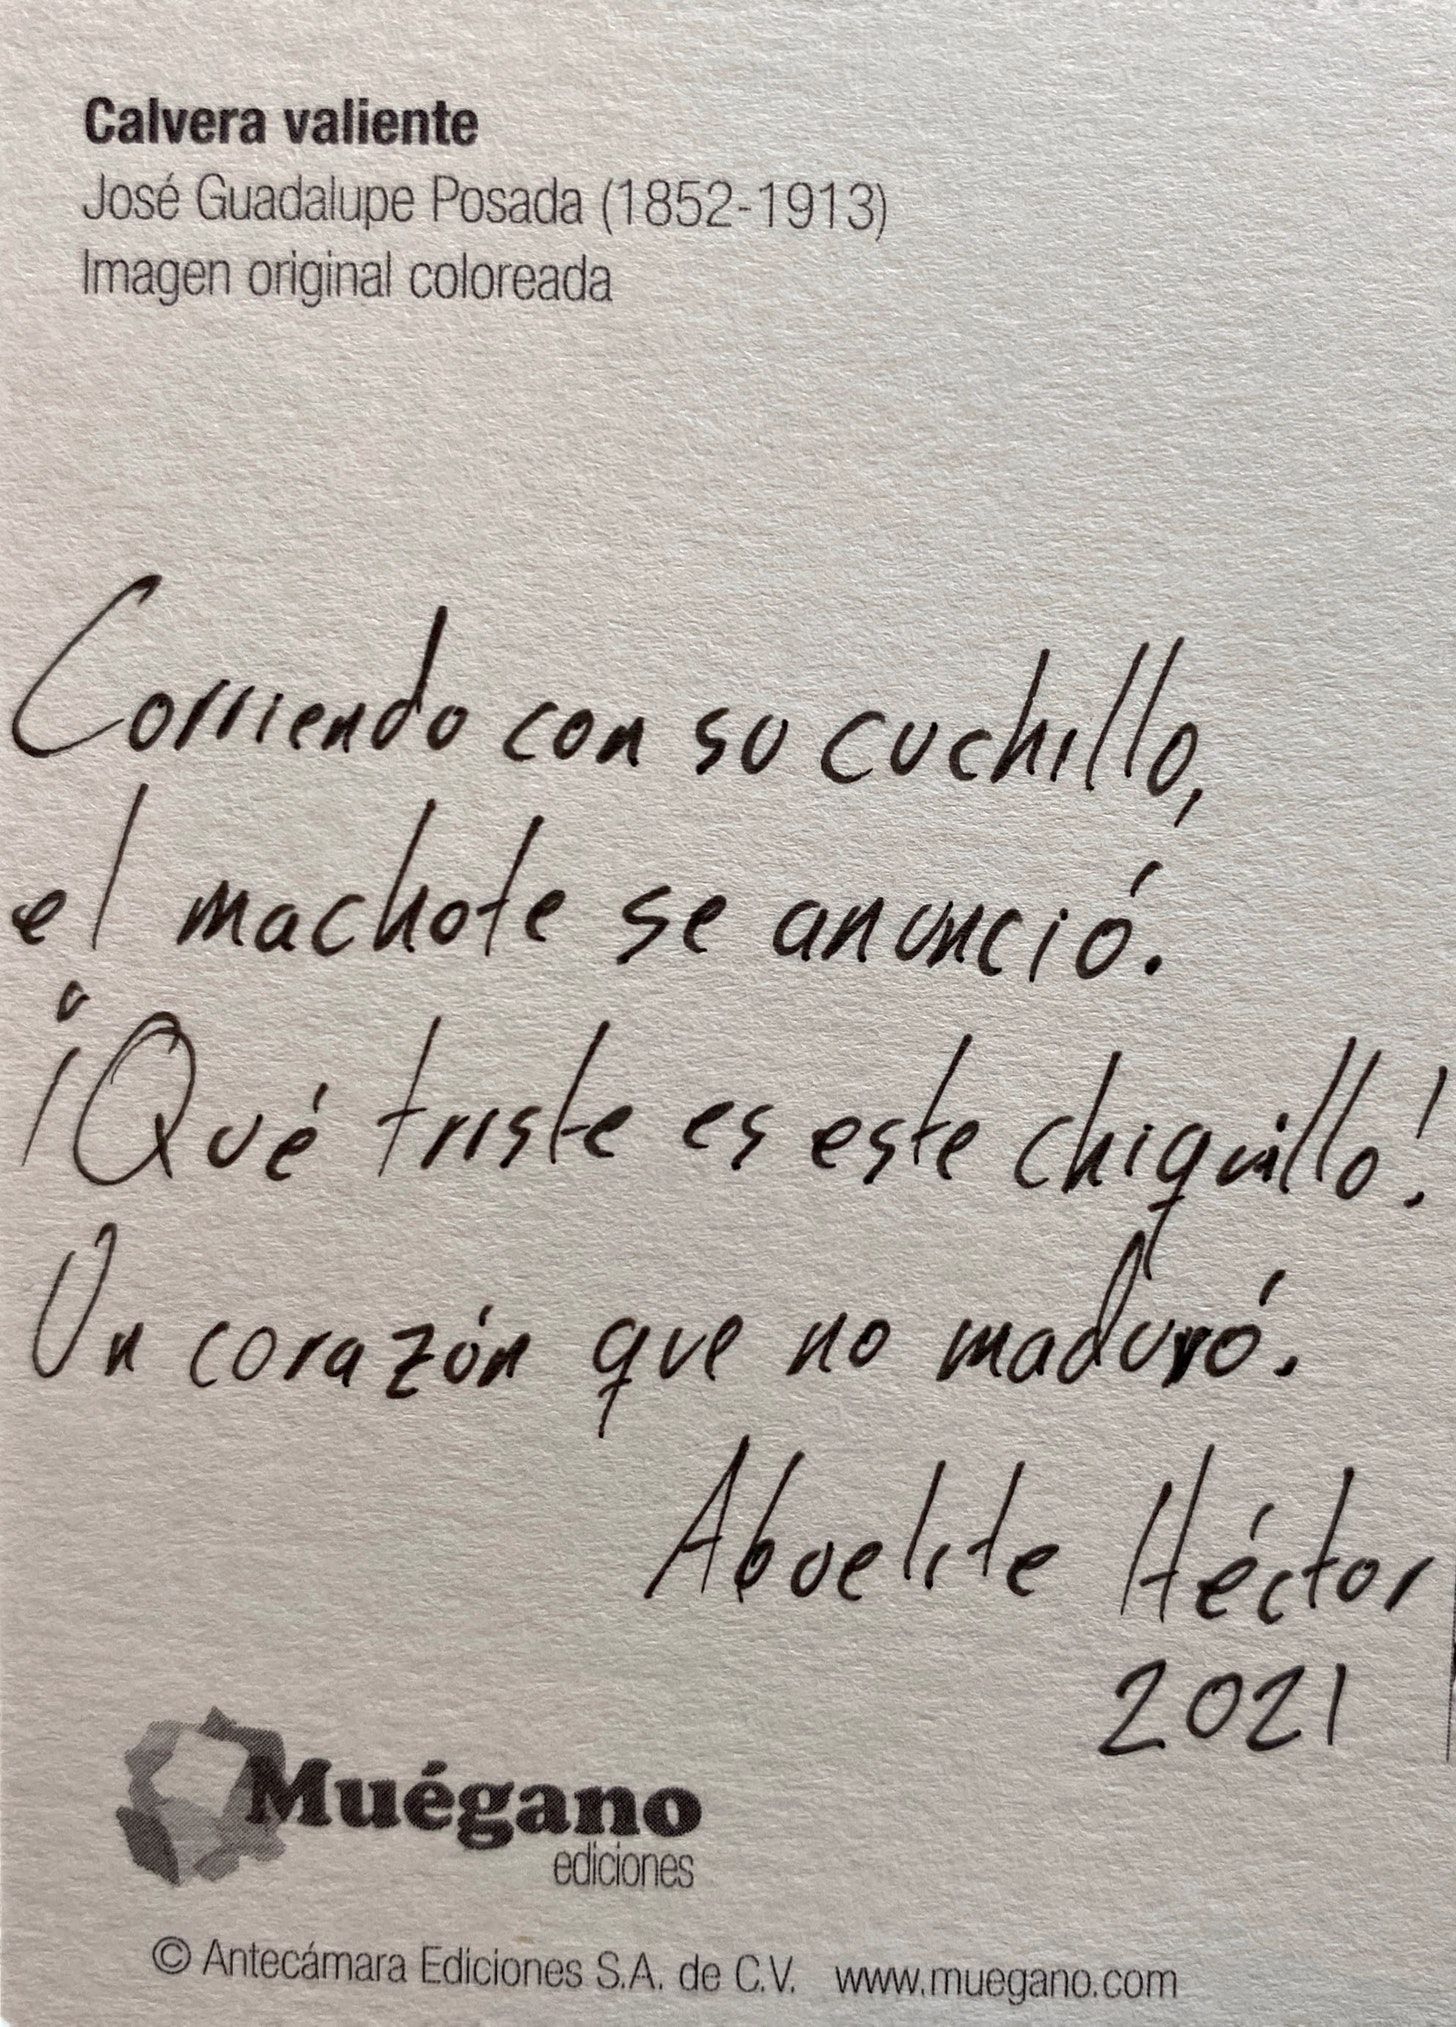 Calvera valiente
José Guadalupe Posada (1852-1913)
Imagen original coloreada
Corriendo con su cuchillo,
el machote se anunció.
¡Qué triste es este chiquillo!
Un corazón que no maduró.
Abuelite Héctor
2021
Muégano
ediciones
© Antecámara Ediciones S.A. de C.V. www.muegano.com